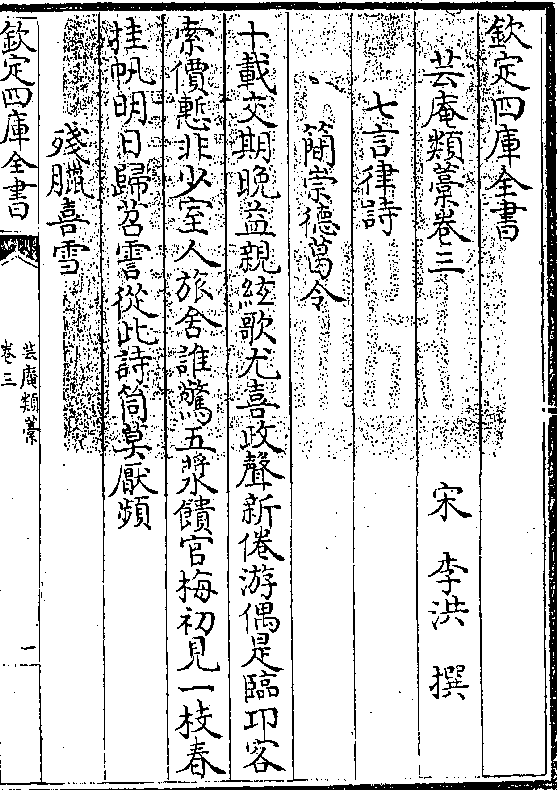 欽定四庫全書
芸庵類藁卷三
宋 李洪 撰
七言律詩
簡崇德葛令
十載交期晚益親絃歌尤喜政聲新倦游偶是臨卭客
索價慙非少室人旅舍誰驚五漿饋官梅初見一枝春
挂帆明日歸苕霅從此詩筒莫厭頻
殘臘喜雪
欽定四庫全書
芸庵類藁
卷三
一